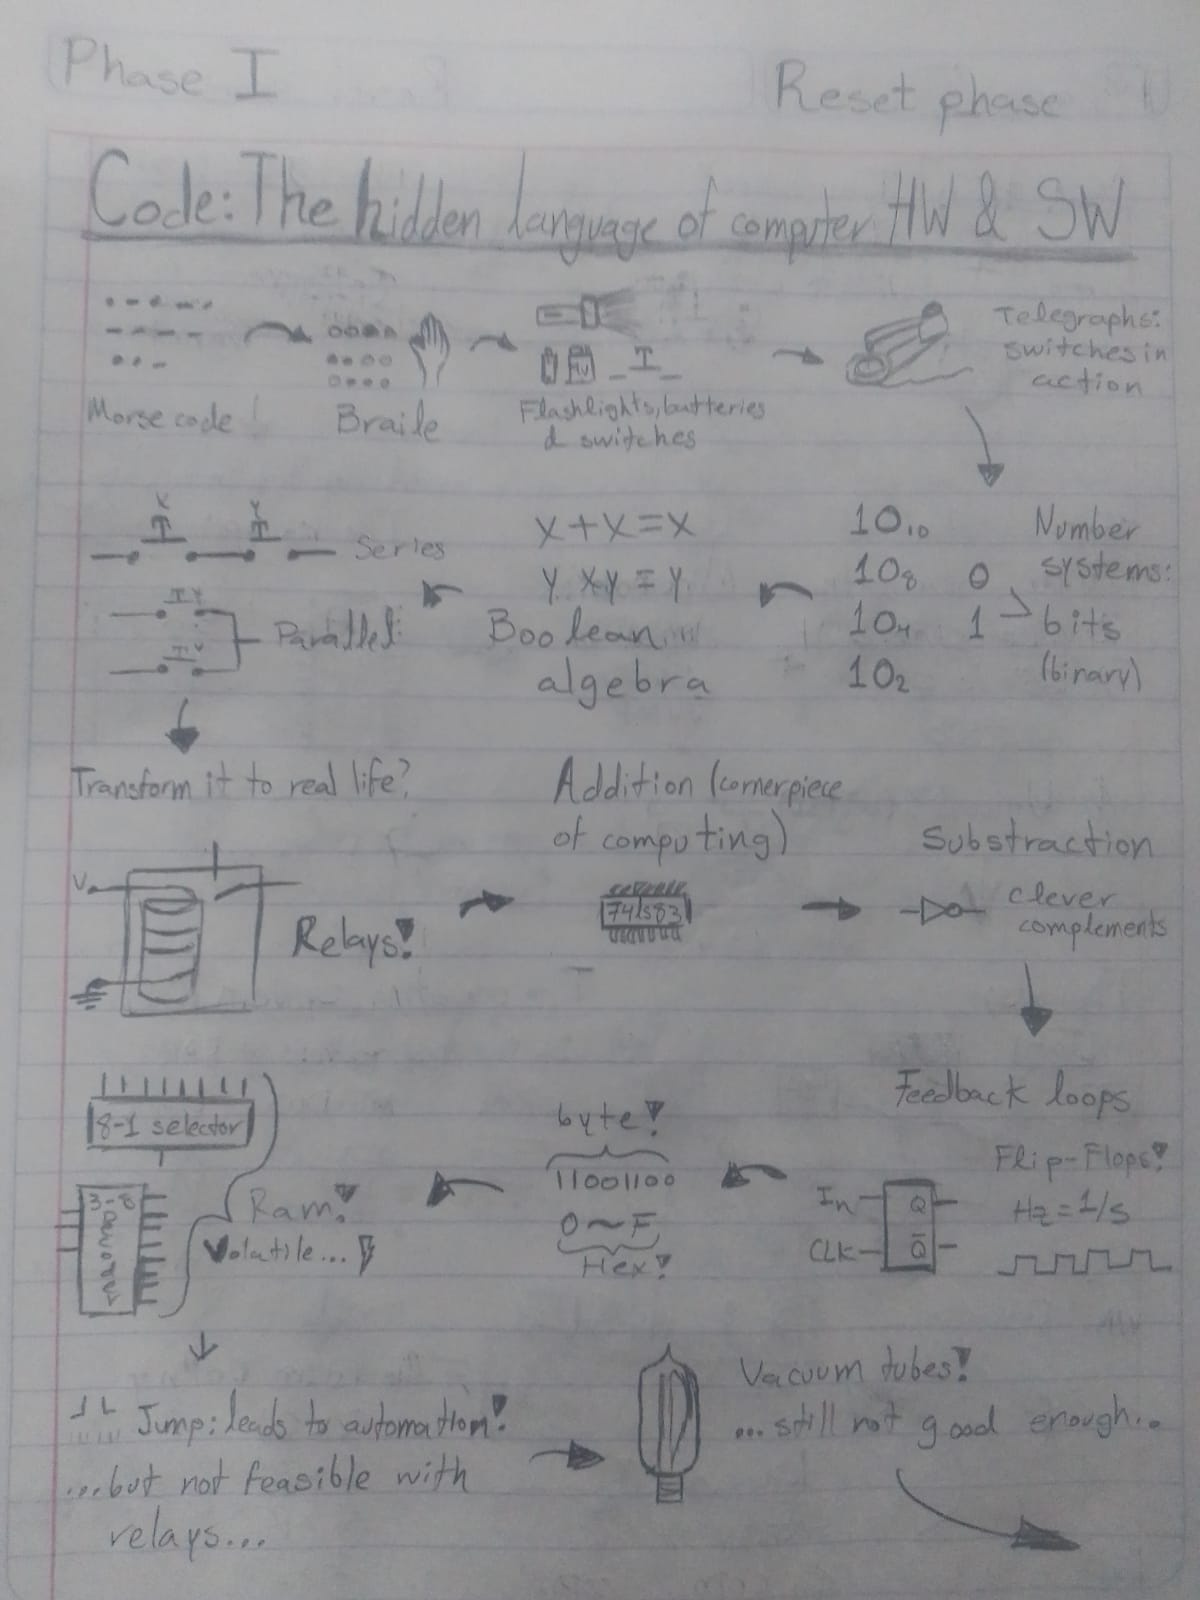 Phase I
Reset phase
Code: The hidden language of computer HW & SW
Morse code !
Braile
Flashlights, batteries
& switches
Telegraphs:
switches in
action
Number
systems:
bits
(binary)
0
1
10₁₀
10₈
10₄
10₂
X+X=X
Y XY = Y
Boolean
algebra
X Y
Series
Parallel
Transform it to real life?
V
Relays!
Addition (cornerpiece
of computing)
74ls83
Substraction
clever
complements
Feedback loops
Flip-Flops!
Hz=1/s
In
CLK
Q
Q̅
byte!
11001100
0~F
Hex!
8-1 selector
3-8
Ram!
Volatile...
Jump: leads to automation!
...but not feasible with
relays...
Vacuum tubes!
...still not good enough...